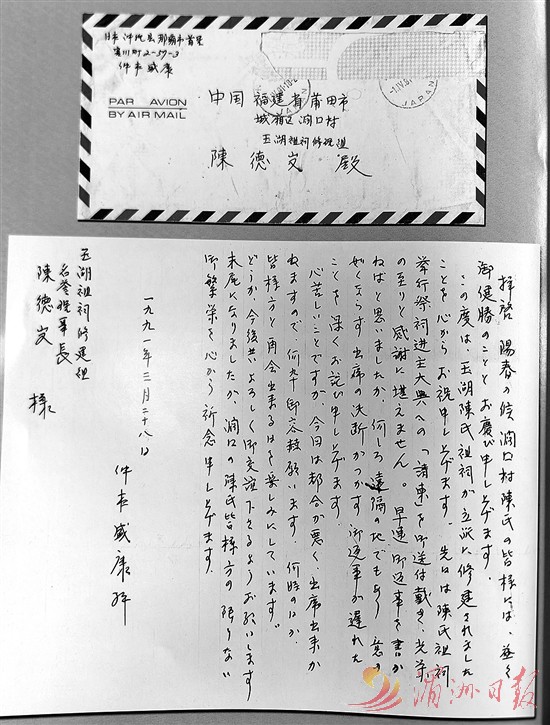 日本 沖縄县那覇市首里
寒川町2-57-3
仲本盛康
PAR AVION
BY AIR MAIL
JAPAN
JAPAN
中国 福建省莆田市
城廂区 濶口村
玉湖祖祠修建組
陳德发 殿
拝啓 陽春の候 濶口村陳氏の皆様には、益々
御健勝のことと お慶び申し上げます。
この度は、玉湖陳氏祖祠が立派に修建されました
ことを心からお祝申し上げます。先日は陳氏祖祠
举行祭祠進主大典への「請柬」を御送付戴き、光栄
の至りと感謝に堪えません。早速御返事を書か
ねばと思いましたが、何しろ遠隔の地でもあり 意の
如くならず 出席の決断がつかず 御返事が遅れた
ことを深くお詫び申し上げます。
心苦しいことですが 今回は都合が悪く、出席出来か
ねますので、何卒御容赦願います。何時の日か、
皆様方と再会出来る日を楽しみにしています。
どうか、今後共よろしく御交誼下さるようお願いします
末尾になりましたが、濶口の陳氏皆様方の限りない
御繁栄を心から祈念申し上げます。
一九九一年三月二十八日
仲本盛康 拜
玉湖祖祠修建組
名誉理事長
陳德发 様
湄洲日报